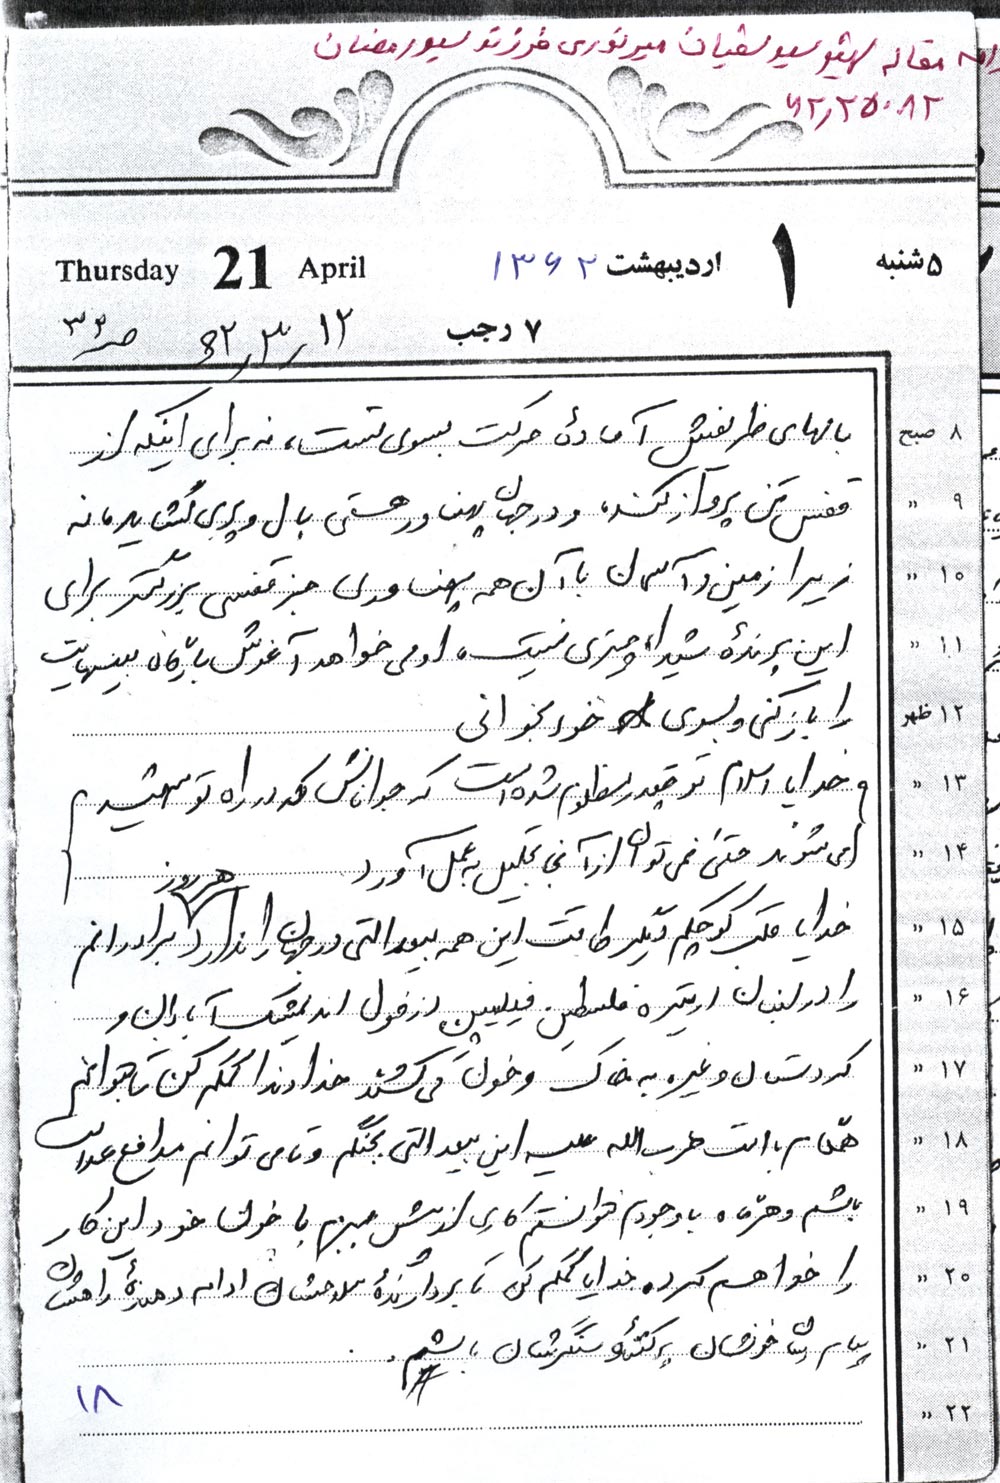 مقاله شهید سید سفیان میرنوری فرزند سیدرمضان
۶۲٫۲۵۰۸۲
۵شنبه ۱ اردیبهشت ۱۳۶۲ Thursday 21 April
۷ رجب ۶۲٫۳٫۱۲ ص ۳۲
۸ صبح بالهای ظریفش آماده حرکت بسوی تست، نه برای اینکه از
۹ " قفس تن پرواز کند، و در جهان پهناور هستی بال و پری گشاید نه
۱۰ " زیرا زمین و آسمان با آن همه پهناوری جز قفسی بزرگتر برای
۱۱ " این پرنده شیدا، چیزی نیست، او می خواهد آغوش بارگاه بینهایت
۱۲ ظهر را باز کنی و بسوی خود بخوانی
۱۳ " خدایا اسلام تو چقدر مظلوم شده است که جوانانش که در راه تو شهید
۱۴ " می شوند حتی نمی توان از آنها تجلیل به عمل آورد
هر روز
۱۵ " خدایا قلب کوچکم دیگر طاقت این همه بیعدالتی در جهان را ندارد برادرانم
۱۶ " را در لبنان اریتره فلسطین فیلیپین دزفول اندیمشک آبادان و
۱۷ " کردستان و غیره به خاک و خون می کشند خداوندا کمکم کن تا بتوانم
۱۸ " همگام با امت حزب الله علیه این بیعدالتی بجنگم و تا می توانم مدافع عدالت
۱۹ " باشم و هرگاه با وجودم نتوانستم کاری از پیش ببرم با خون خود این کار
۲۰ " را خواهم کرد، خدایا کمکم کن تا بردارنده سلاحشان ادامه دهنده راهشان
۲۱ " پیام رسان خونشان پرکننده سنگرشان باشیم.
۲۲ "
۱۸